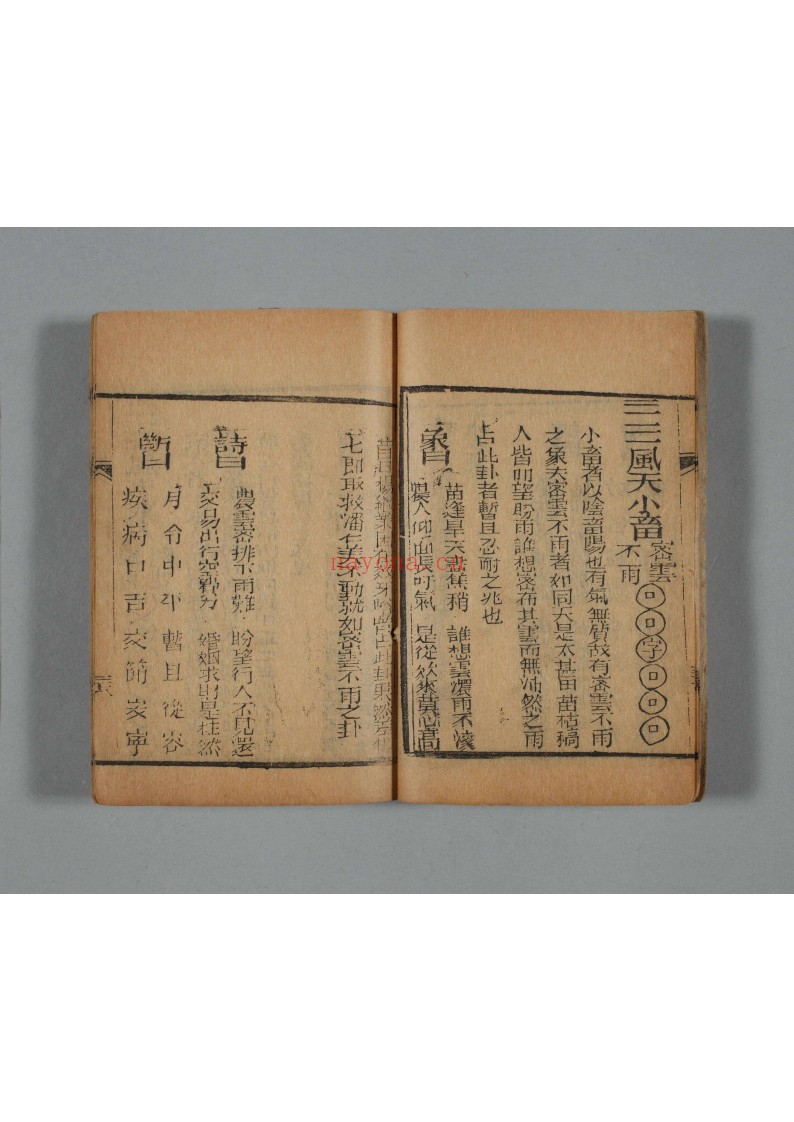 風天小畜 密雲不雨
口口字口口口
小畜者以陰畜陽也有氣無質故有密雲不雨
之象夫密雲不雨者如同天是太甚苗苗枯稿
人皆仰望盼雨誰想密布其雲而無沛然之雨
占此卦者暫且忍耐之兆也
象曰 苗逢旱天盡焦稍 誰想雲濃雨不澆
農人仰面長吁氣 是從款來莫心高
昔日楊繼業困在 曾占此卦果然
七郎取救潘仁美不動就如密雲不雨之卦
詩曰 濃雲密排下雨難 盼望行人不見還
交易出行空費力 婚姻求財是枉然
斷曰 月令中平 暫且從容
疾病口舌 交節安寧
nayona.cn